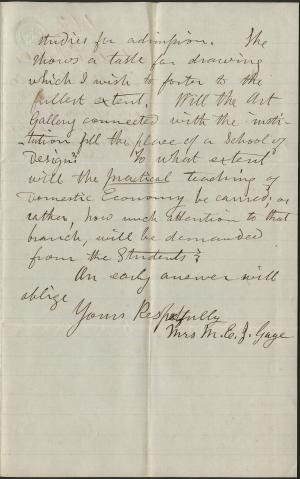 studies for admission. She
shows a taste for drawing
which I wish to foster to the
fullest extent. Will the Art
Gallery connected with the insti-
tution fill the place of a School of
Design? To what extent
will the practical teaching of
Domestic Economy be carried; or
rather, how much attention to that
branch, will be demanded
from the Students?
An early answer will
oblige
Yours Respectfully
Mrs M. E. J. Gage